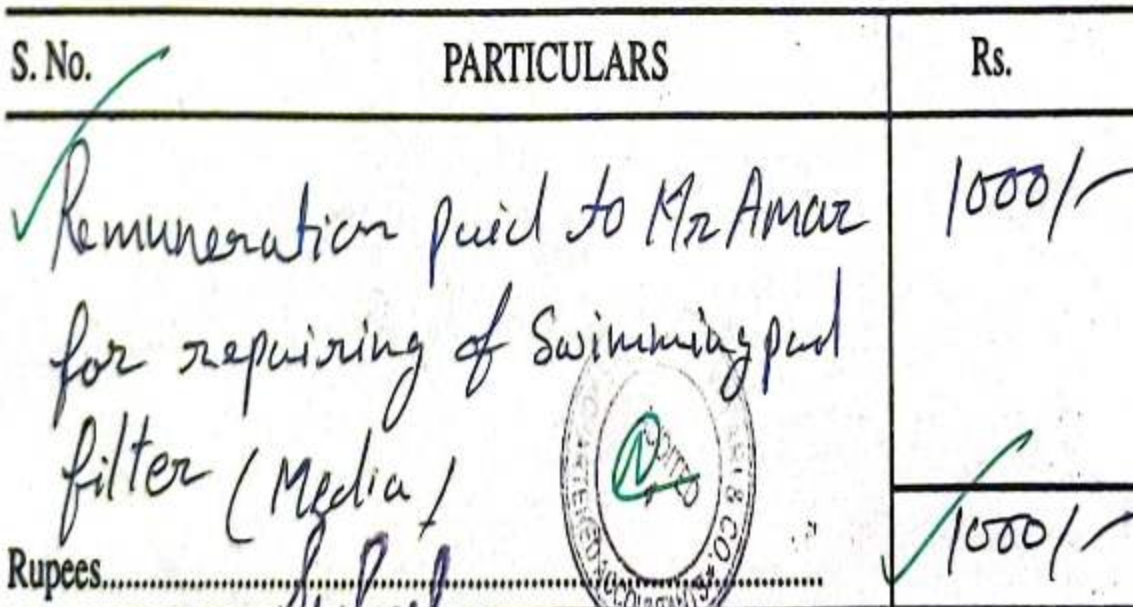 S. No. PARTICULARS Rs.
Remuneration paid to Mr Amar 1000/-
for repairing of Swimming pool
filter (Media)
1000/-
Rupees
& CO.